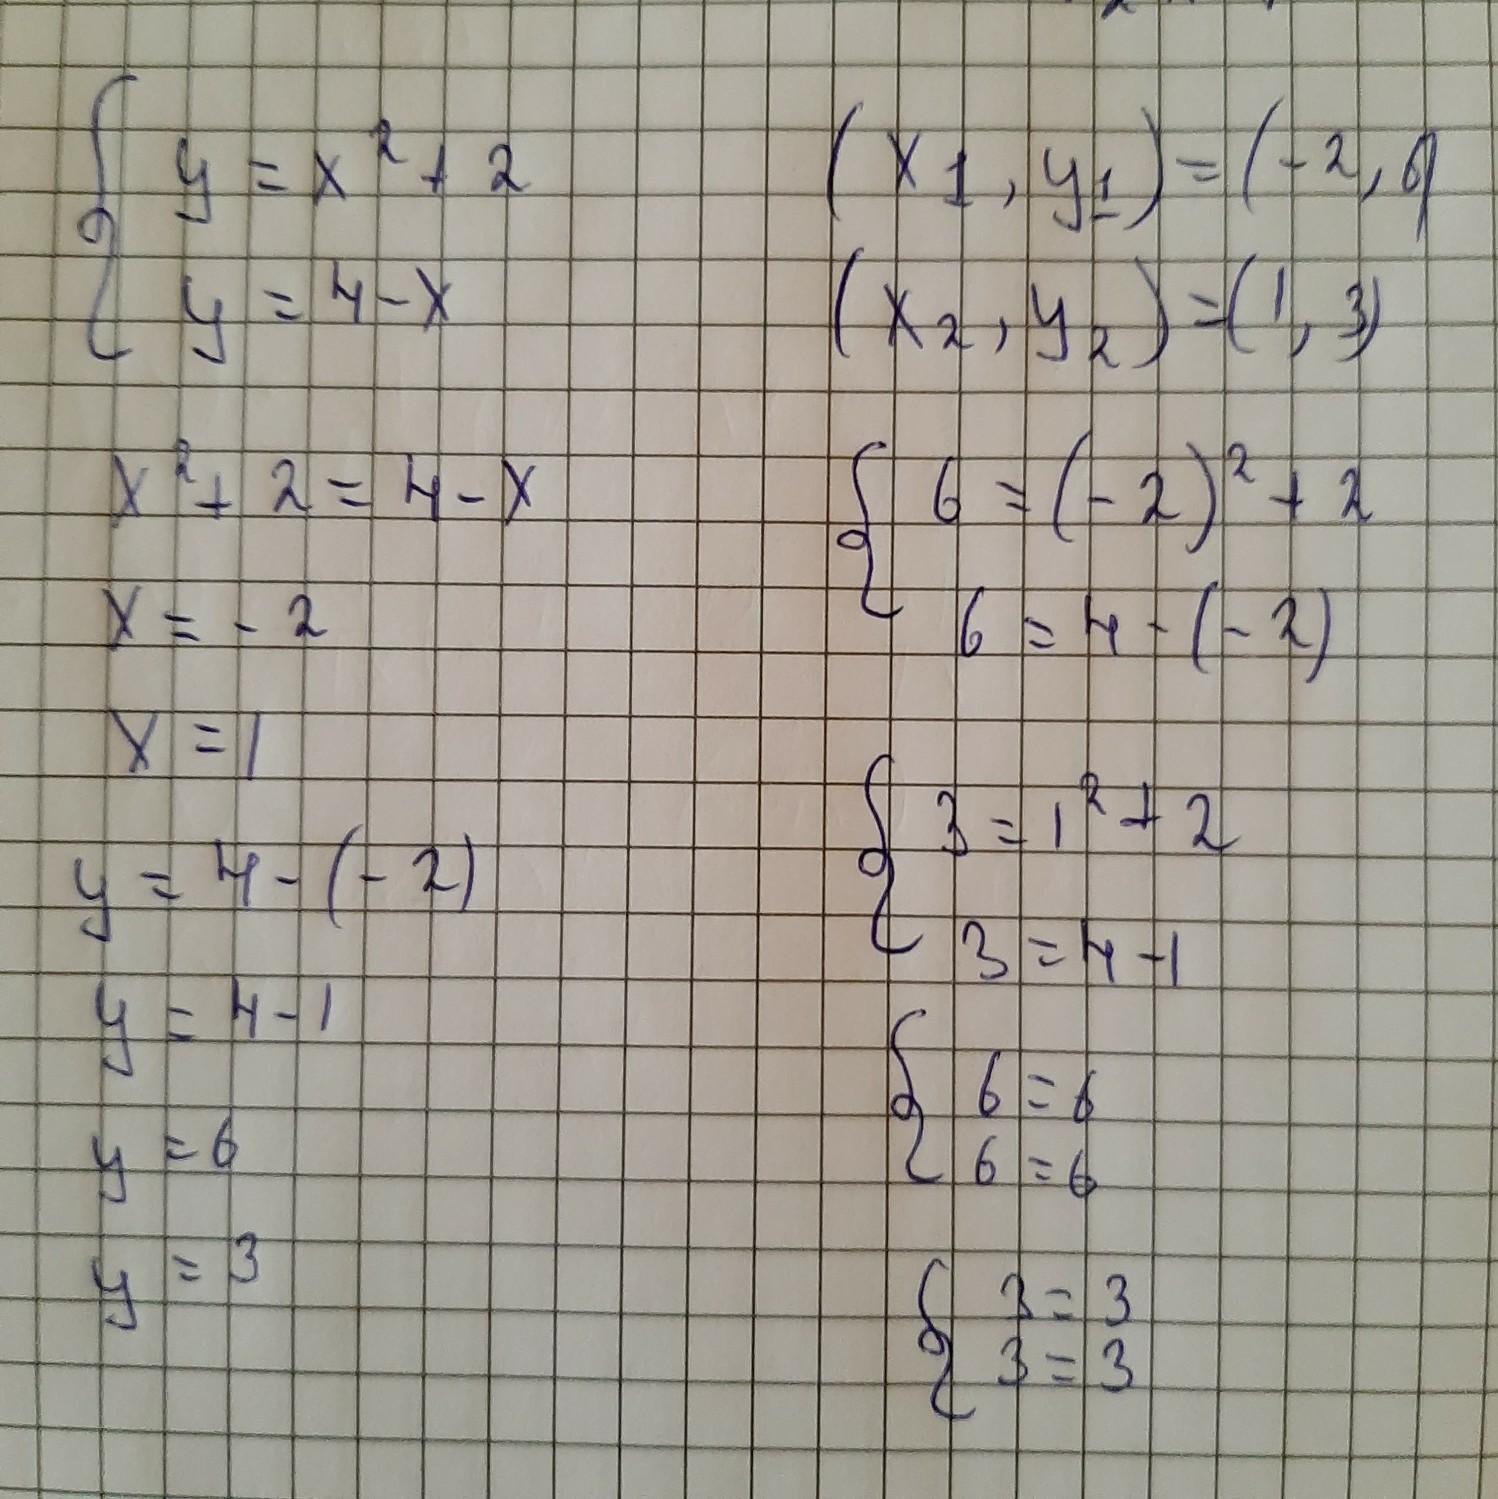 y = x² + 2
y = 4 - x
x² + 2 = 4 - x
x = - 2
x = 1
y = 4 - (- 2)
y = 4 - 1
y = 6
y = 3
(x1, y1) = (-2, 6)
(x2, y2) = (1, 3)
6 = (- 2)² + 2
6 = 4 - (- 2)
3 = 1² + 2
3 = 4 - 1
6 = 6
6 = 6
3 = 3
3 = 3